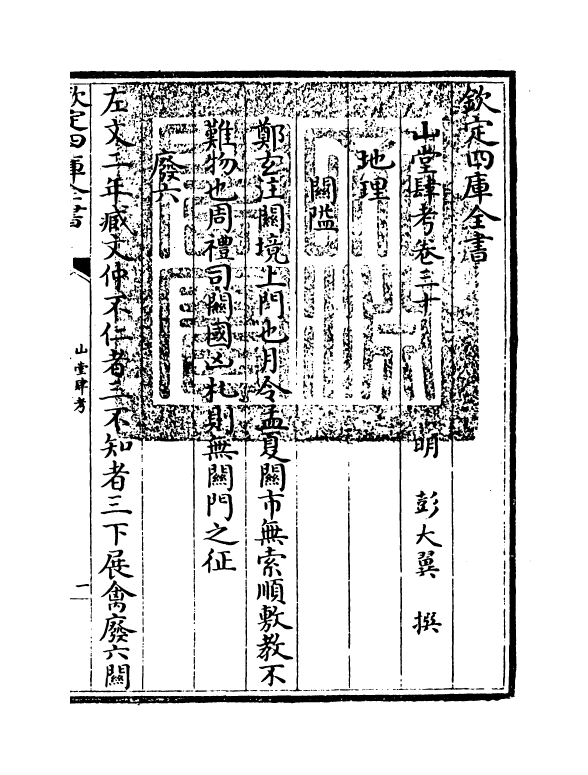 欽定四庫全書
山堂肆考卷三十
明 彭大翼 撰
地理
關隘
鄭玄注關境上門也月令孟夏關市無索順敷教不
難物也周禮司關國凶札則無關門之征
廢六
左文二年臧文仲不仁者三不知者三下展禽廢六關
欽定四庫全書
山堂肆考
一